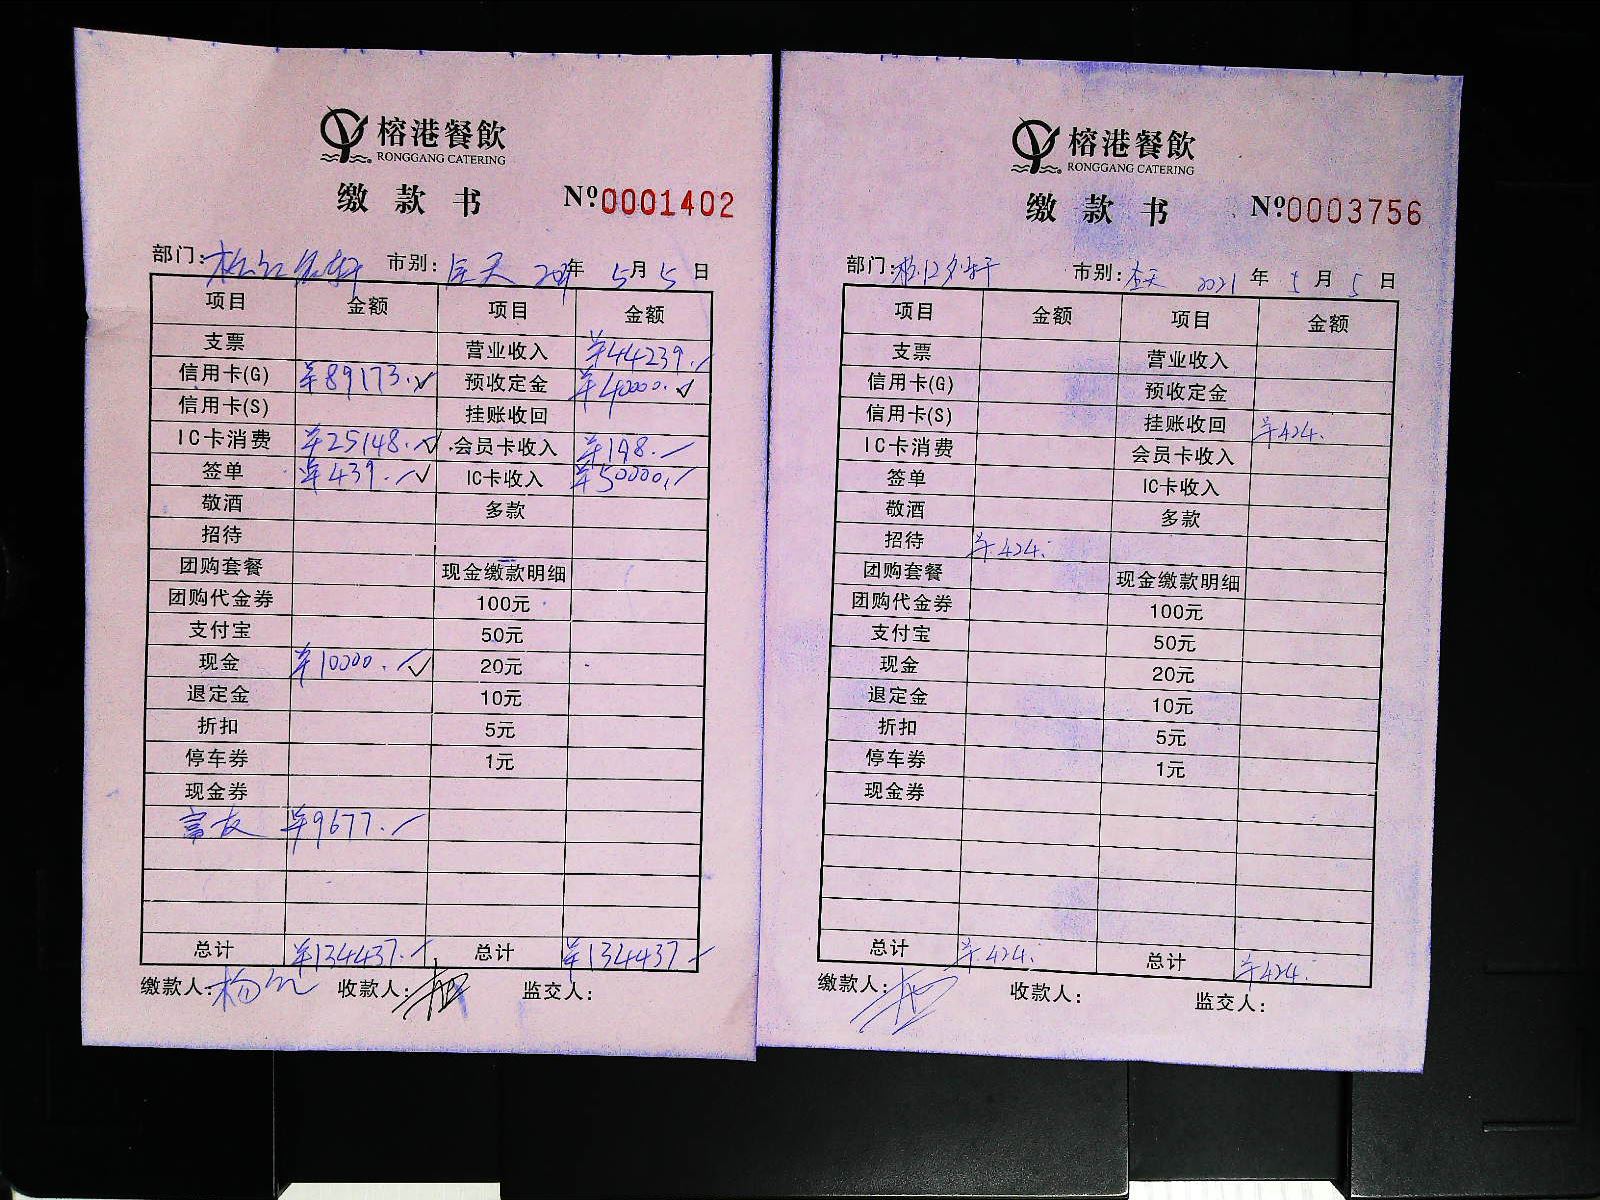 榕港餐飲
RONGGANG CATERING
缴款书 Nº0001402
部门: 市别: 全天 年 5月5日
项目 金额 项目 金额
支票 营业收入 ¥44239.
信用卡(G) ¥89173. 预收定金 ¥40000.
信用卡(S) 挂账收回
IC卡消费 ¥25148. 会员卡收入 ¥198.
签单 ¥439. IC卡收入 ¥50000.
敬酒 多款
招待
团购套餐 现金缴款明细
团购代金券 100元
支付宝 50元
现金 ¥10000. 20元
退定金 10元
折扣 5元
停车券 1元
现金券
富友 ¥9677.
总计 ¥134437. 总计 ¥134437
缴款人: 收款人: 监交人:
榕港餐飲
RONGGANG CATERING
缴款书 Nº0003756
部门: 市别: 全天 2021年5月5日
项目 金额 项目 金额
支票 营业收入
信用卡(G) 预收定金
信用卡(S) 挂账收回 ¥424.
IC卡消费 会员卡收入
签单 IC卡收入
敬酒 多款
招待 ¥424.
团购套餐 现金缴款明细
团购代金券 100元
支付宝 50元
现金 20元
退定金 10元
折扣 5元
停车券 1元
现金券
总计 ¥424. 总计 ¥424.
缴款人: 收款人: 监交人: